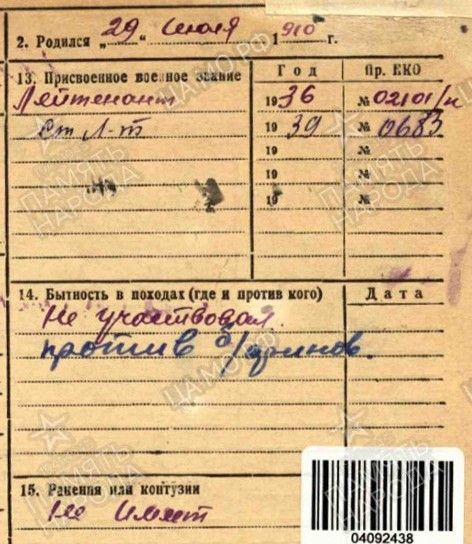 2. Родился „29“ июля 1910 г.
13. Присвоенное военное звание Год Пр. НКО
Лейтенант 1936 № 02101/п
Ст Л-т 1939 № 0683
19 №
19 №
19 №
14. Бытность в походах (где и против кого) Дата
Не участвовал.
против б/финнов.
15. Ранения или контузии
Не имеет
04092438
ПАМЯТЬ НАРОДА
ЦАМО.РФ